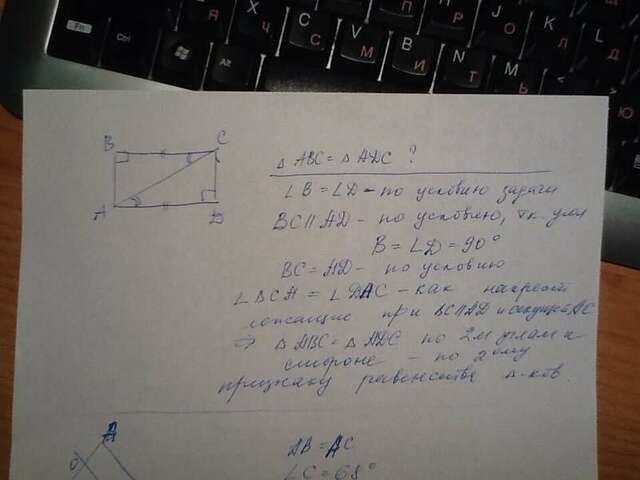 Fn
Ctrl
Alt
X Ч
C С
V М
B И
N Т
M Ь
П
Р
J О
K Л
L Д
Я
B
C
A
D
△ ABC = △ ADC ?
∠B = ∠D – по условию задачи
BC || AD – по условию, т.к. угол
B = ∠D = 90°
BC = AD – по условию
∠BCA = ∠DAC – как накрест
лежащие при BC||AD и секущей AC
⇒ △ ABC = △ ADC по 2м углам и
стороне – по 2ому
признаку равенства △-ков.
A
AB = AC
∠C = 68°